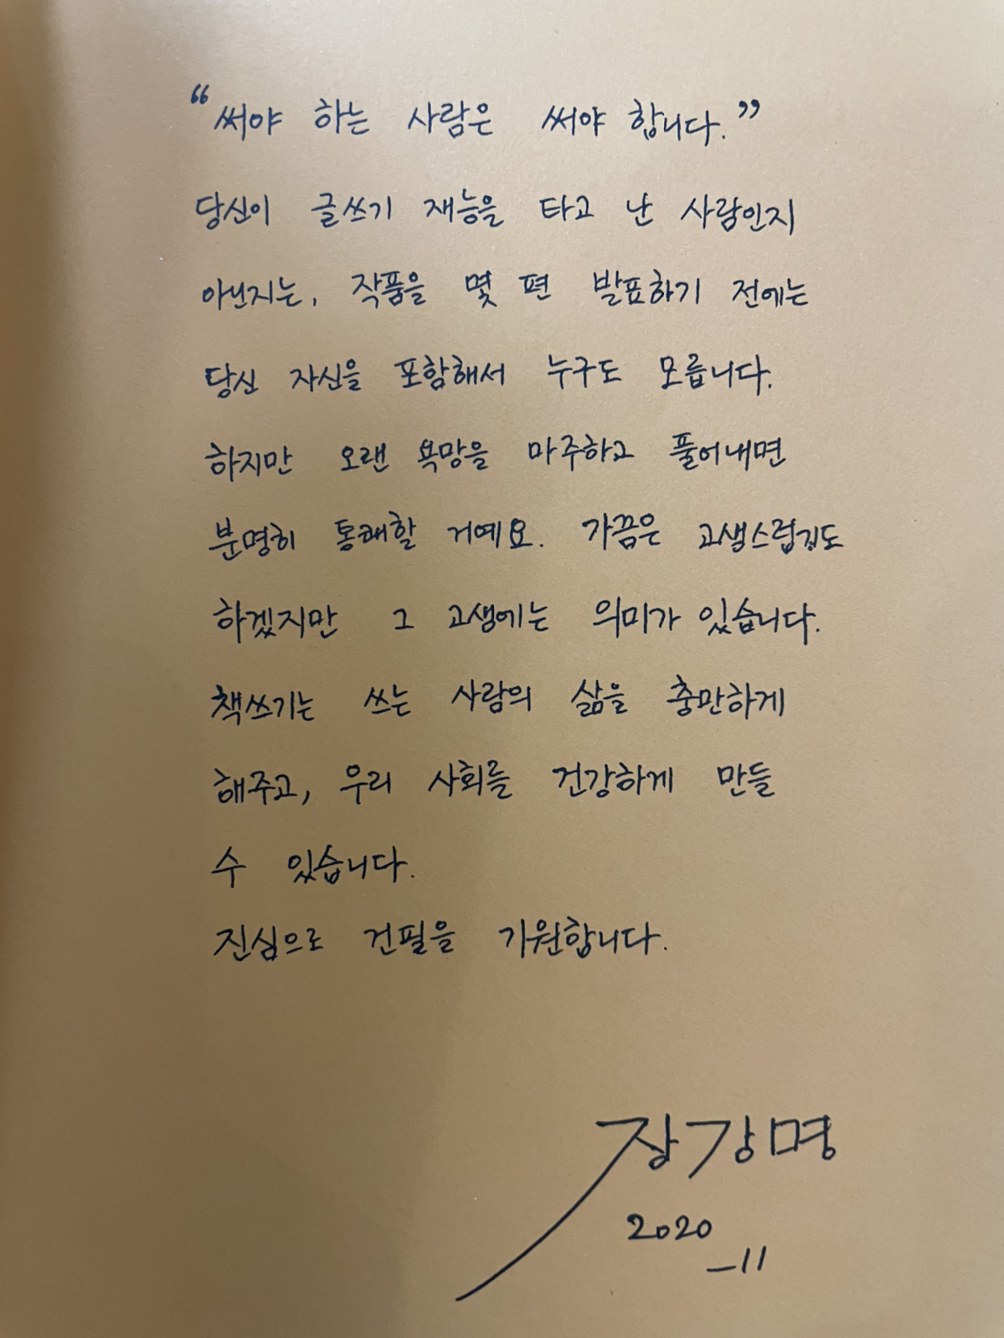 “써야 하는 사람은 써야 합니다.”
당신이 글쓰기 재능을 타고 난 사람인지
아닌지는, 작품을 몇 편 발표하기 전에는
당신 자신을 포함해서 누구도 모릅니다.
하지만 오랜 욕망을 마주하고 풀어내면
분명히 통쾌할 거예요. 가끔은 고생스럽기도
하겠지만 그 고생에는 의미가 있습니다.
책쓰기는 쓰는 사람의 삶을 충만하게
해주고, 우리 사회를 건강하게 만들
수 있습니다.
진심으로 건필을 기원합니다.
장강명
2020
-11